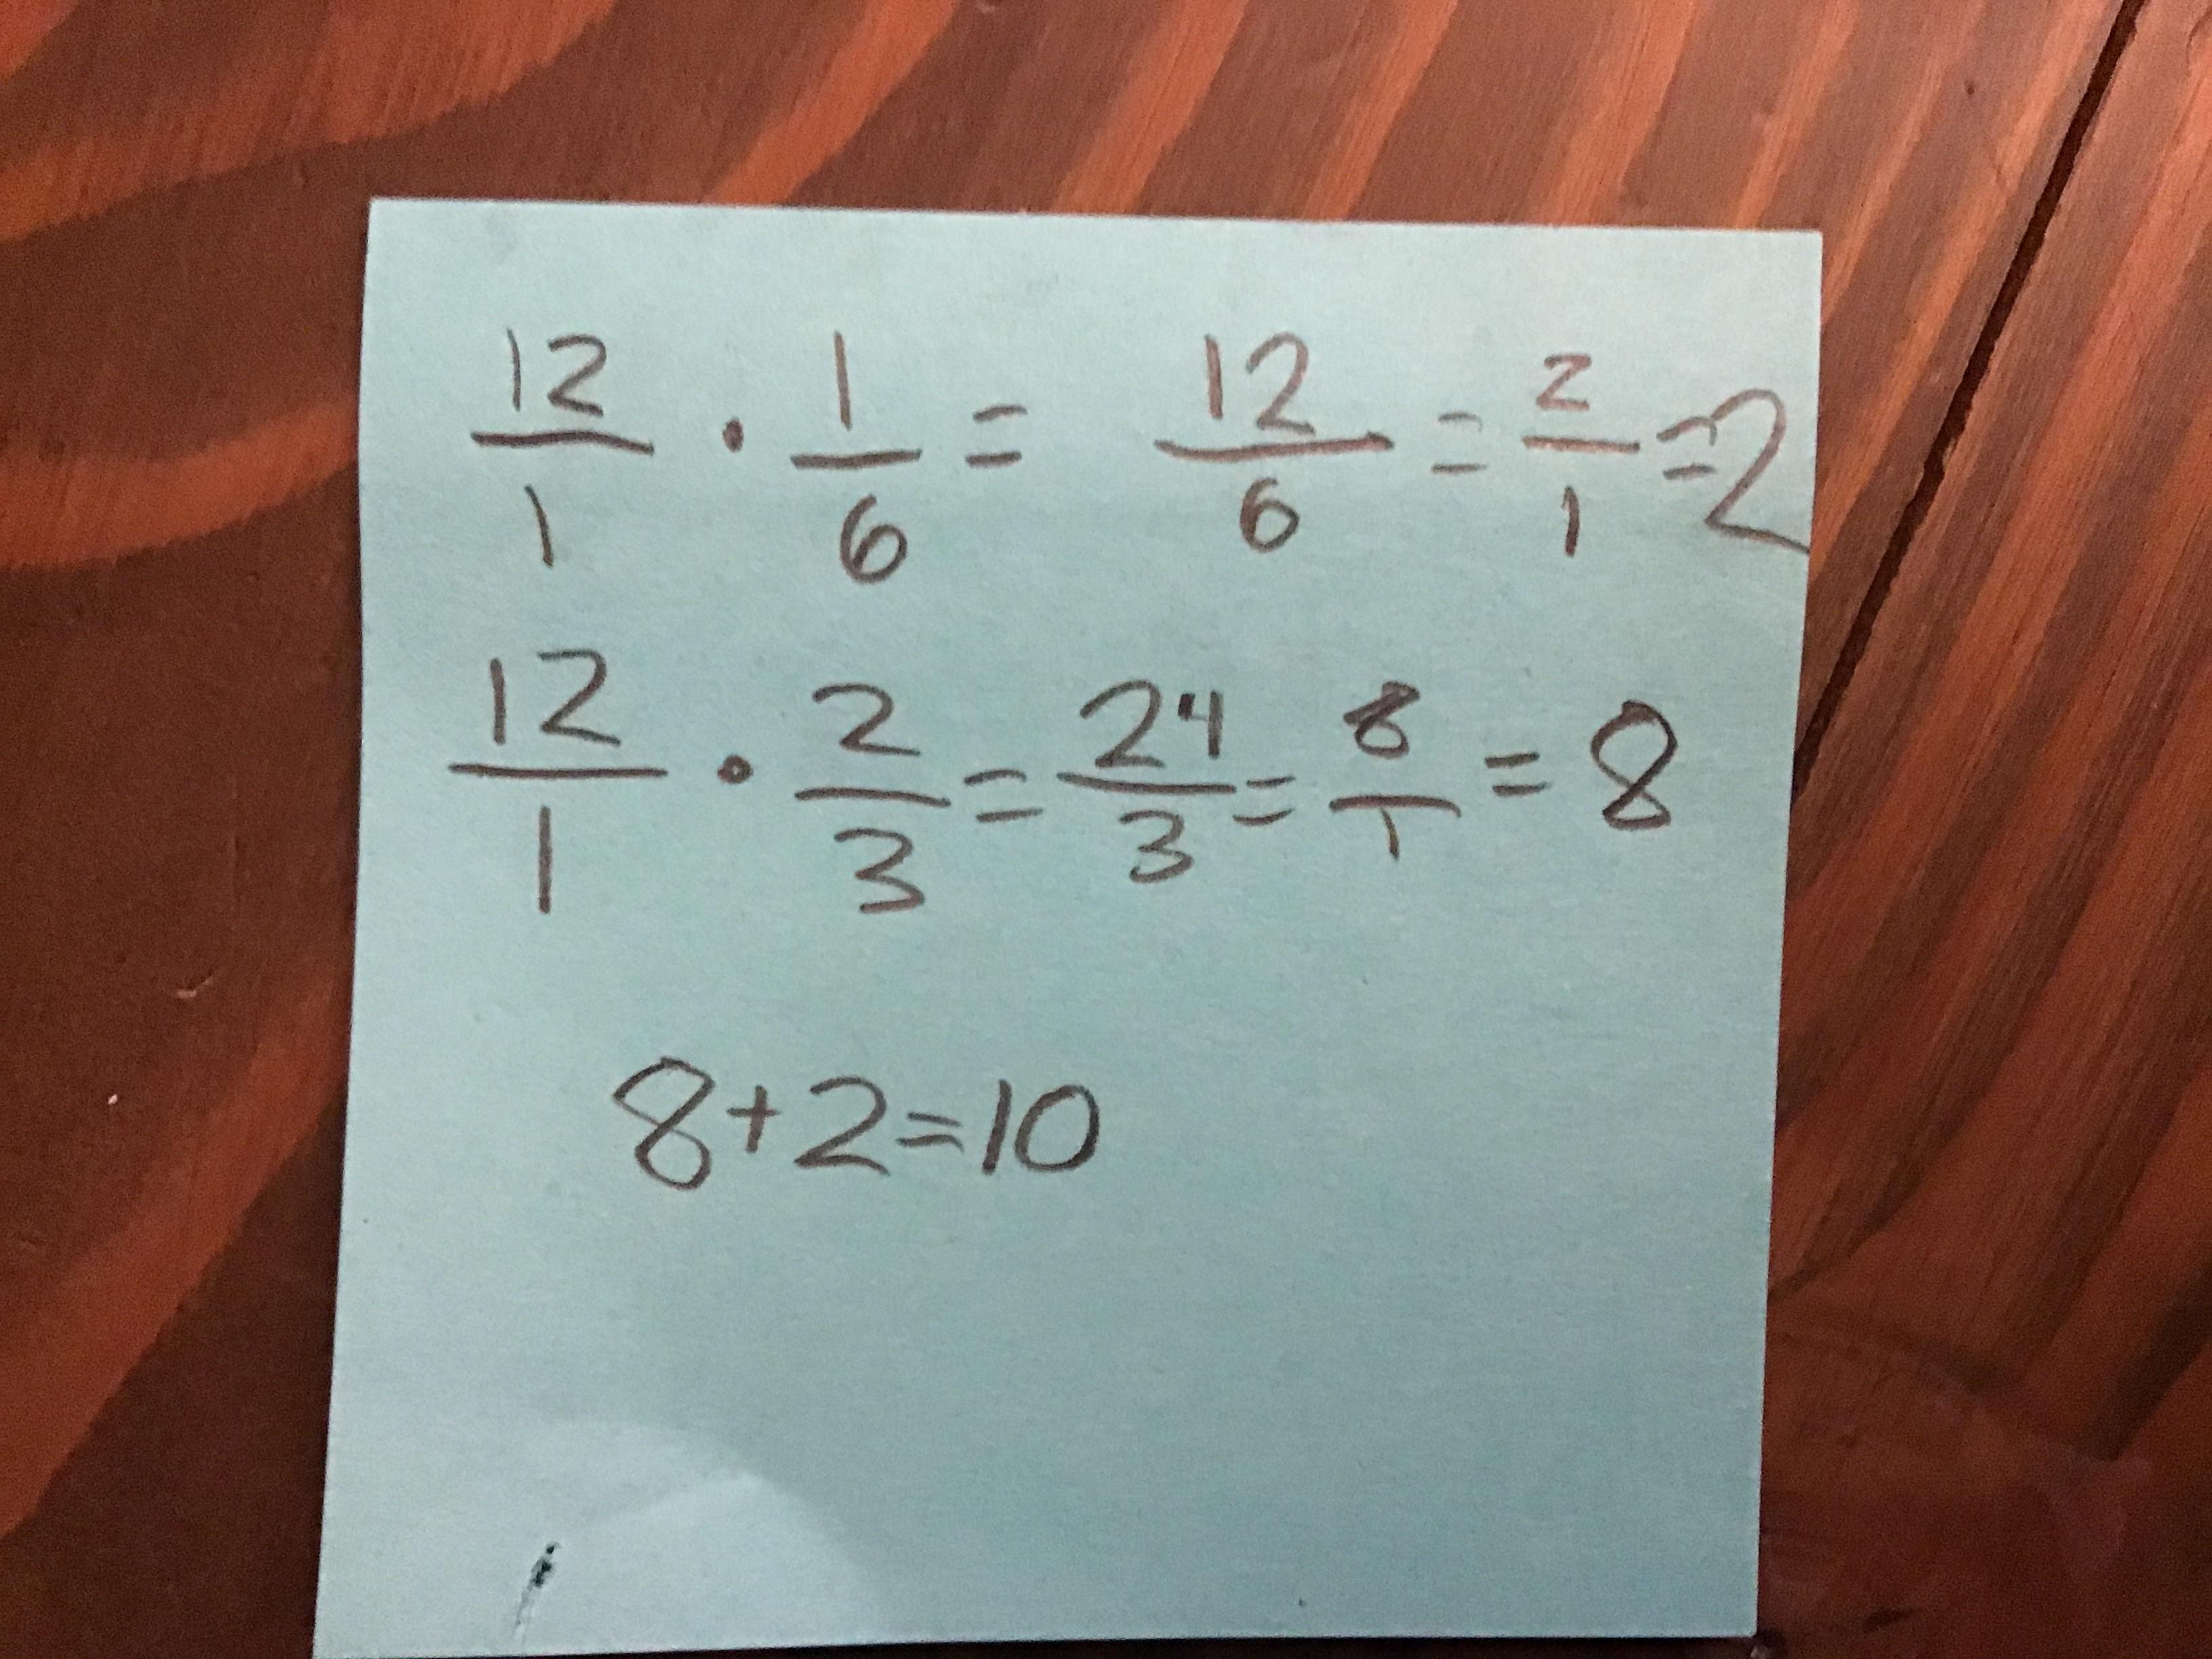 12/1 · 1/6 = 12/6 = 2/1 = 2
12/1 · 2/3 = 24/3 = 8/1 = 8
8+2=10